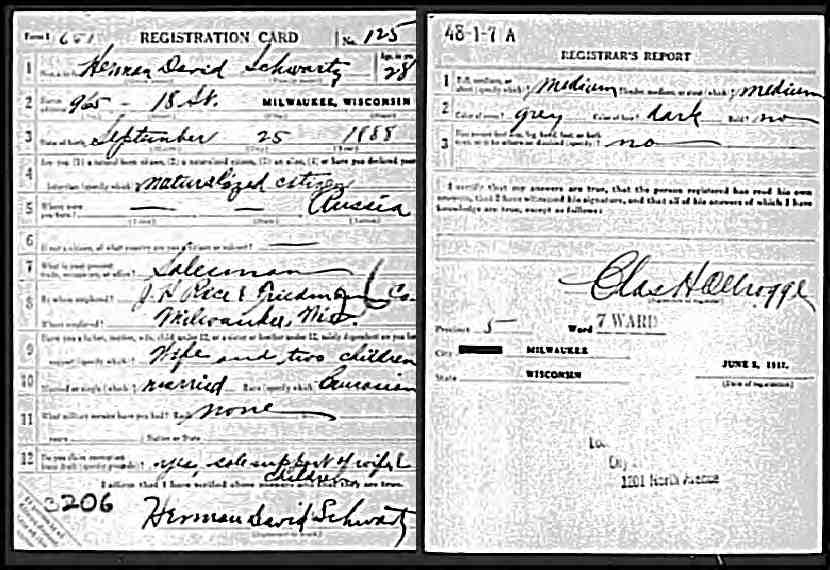 Form 1 651 REGISTRATION CARD No. 125
1 Herman David Schwartz Age, in yrs 28
2 965 - 18 St. MILWAUKEE, WISCONSIN
3 Date of birth September 25 1888
4 Are you (1) a natural born citizen, (2) a naturalized citizen, (3) an alien, (4) or have you declared your
intention (specify which)? naturalized citizen
5 Where were you born? — — Russia
6 If not a citizen, of what country are you a citizen or subject? —
7 What is your present trade, occupation, or office? Salesman
8 By whom employed? J. H. Rice & Friedman Co.
Where employed? Milwaukee, Wis.
9 Have you a father, mother, wife, child under 12, or a sister or brother under 12, solely dependent on you for
support (specify which)? Wife and two children
10 Married or single (which)? married Race (specify which)? Caucasian
11 What military service have you had? Rank none
years Nation or State
12 Do you claim exemption from draft (specify grounds)? yes, sole support of wife &
children
I affirm that I have verified above answers and that they are true.
3206
Herman David Schwartz
48-1-7 A
REGISTRAR'S REPORT
1 Tall, medium, or short (specify which)? medium Slender, medium, or stout (which)? medium
2 Color of eyes? grey Color of hair? dark Bald? no
3 no
I certify that my answers are true, that the person registered has read his own
answers, that I have witnessed his signature, and that all of his answers of which I have
knowledge are true, except as follows:
Precinct 5 Ward 7 WARD
City MILWAUKEE JUNE 5, 1917.
State WISCONSIN (Date of registration)
1201 North Avenue